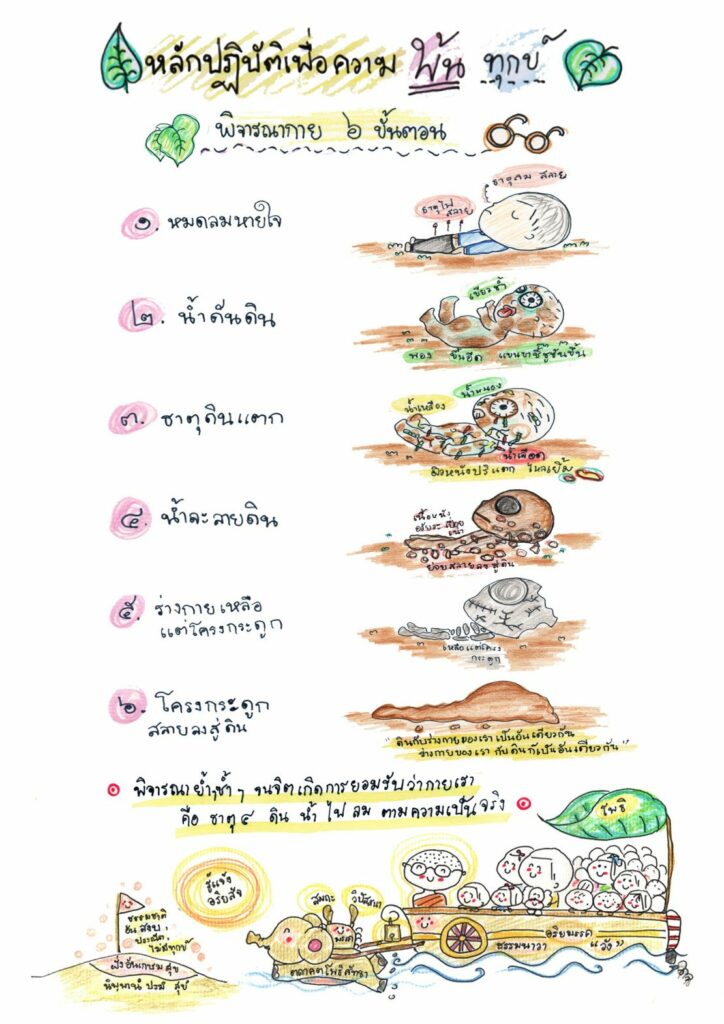 หลักปฏิบัติเพื่อความ พ้น ทุกข์
พิจารณากาย ๖ ขั้นตอน
๑. หมดลมหายใจ
ธาตุลม สลาย
ธาตุไฟ
สลาย
๒. น้ำดันดิน
เขียวช้ำ
พอง ขึ้นอืด แขนขาชี้ชูชันขึ้น
๓. ธาตุดินแตก
น้ำเหลือง
น้ำหนอง
น้ำเลือด
ผิวหนังปริแตก ไหลเยิ้ม
๔. น้ำละลายดิน
เนื้อหนัง
อวัยวะเปื่อย
เน่า
ย่อยสลายลงสู่ดิน
๕. ร่างกายเหลือ
แต่โครงกระดูก
เหลือแต่โครง
กระดูก
๖. โครงกระดูก
สลายลงสู่ดิน
"ดินกับร่างกายของเราเป็นอันเดียวกัน
ร่างกายของเรา กับดินก็เป็นอันเดียวกัน"
พิจารณาย้ำ ซ้ำ ๆ จนจิตเกิดการยอมรับว่ากายเรา
คือ ธาตุ ๔ ดิน น้ำ ไฟ ลม ตามความเป็นจริง
โพธิ
รู้แจ้ง
อริยสัจ
สมถะ วิปัสสนา
ธรรมชาติ
อัน สงบ,
ประณีต,
ไม่มีทุกข์
ฝั่งอันเกษม สุข
นิพพาน ปรมํ สุขํ
ตถาคตโพธิศรัทธา
อริยมรรค
ธรรมนาวา "วัง"